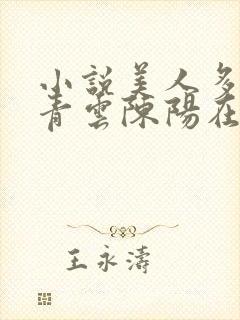 小說美人多
青雲陳陽在
王永濤